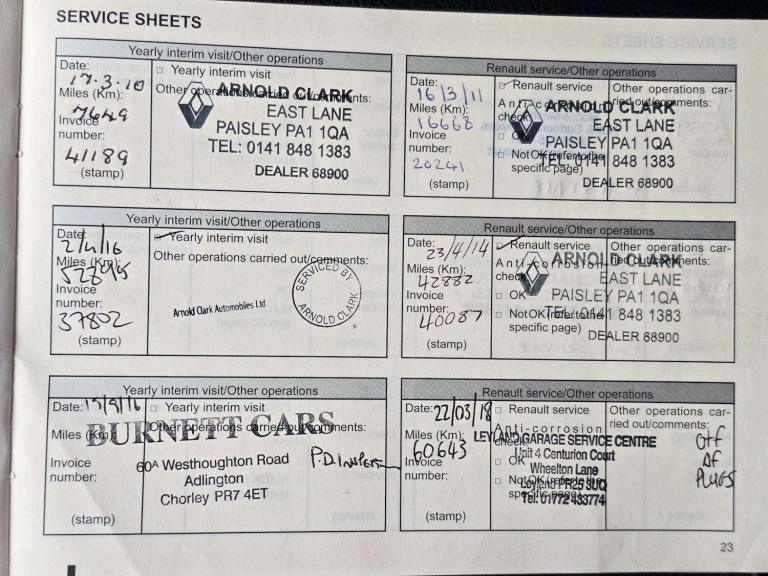 SERVICE SHEETS
Yearly interim visit/Other operations
Date:
17.3.10
Miles (Km):
7649
Invoice
number:
41189
(stamp)
Yearly interim visit
Other operations carried out/comments:
ARNOLD CLARK
EAST LANE
PAISLEY PA1 1QA
TEL: 0141 848 1383
DEALER 68900
Renault service/Other operations
Date:
16/3/11
Miles (Km):
16668
Invoice
number:
20241
(stamp)
Renault service
Anti-corrosion
check
Not OK (refer to the
specific page)
Other operations car-
ried out/comments:
ARNOLD CLARK
EAST LANE
PAISLEY PA1 1QA
TEL: 0141 848 1383
DEALER 68900
Yearly interim visit/Other operations
Date:
2/4/16
Miles (Km):
Invoice
number:
37802
(stamp)
Yearly interim visit
Other operations carried out/comments:
Arnold Clark Automobiles Ltd
SERVICED BY
ARNOLD CLARK
Renault service/Other operations
Date:
23/4/14
Miles (Km):
42882
Invoice
number:
40087
(stamp)
Renault service
Anti-corrosion
check
OK
Not OK (refer to the
specific page)
Other operations car-
ried out/comments:
ARNOLD CLARK
EAST LANE
PAISLEY PA1 1QA
TEL: 0141 848 1383
DEALER 68900
Yearly interim visit/Other operations
Date:
Miles (Km):
Invoice
number:
(stamp)
Yearly interim visit
Other operations carried out/comments:
BURNETT CARS
60A Westhoughton Road
Adlington
Chorley PR7 4ET
Renault service/Other operations
Date:
22/03/18
Miles (Km):
60643
Invoice
number:
(stamp)
Renault service
Anti-corrosion
check
OK
Not OK (refer to the
specific page)
LEYLAND GARAGE SERVICE CENTRE
Unit 4 Centurion Court
Wheelton Lane
Leyland PR25 3UQ
Tel: 01772 433774
Other operations car-
ried out/comments:
O+f
AF
PLUGS
23